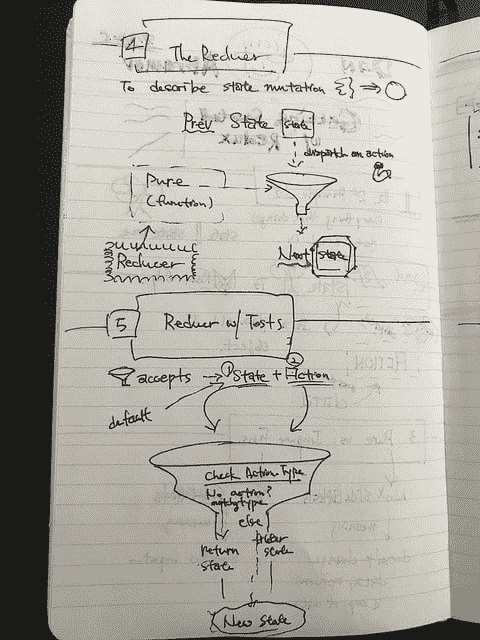 4 The Reducer
To describe state mutation {} ⇒ ○
Prev State state
dispatch an action
Pure
(function)
Reducer
Next state
5 Reducer w/ Tests
accepts → ① State + ② Action
default
check Action Type
No action?
type
else
return
state
state
New State